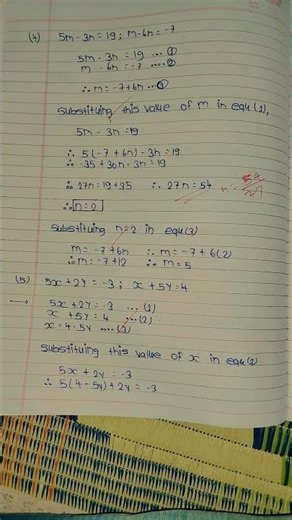 (4) 5m - 3n = 19 ; m - 6n = -7
5m - 3n = 19 .... (1)
m - 6n = -7 .... (2)
∴ m = -7 + 6n ... (3)
Substituting this value of m in equ (1),
5m - 3n = 19
∴ 5(-7 + 6n) - 3n = 19
∴ -35 + 30n - 3n = 19
∴ 27n = 19 + 35 ∴ 27n = 54
∴ n = 2
Substituing n = 2 in equ (3)
m = -7 + 6n ∴ m = -7 + 6(2)
∴ m = -7 + 12 ∴ m = 5
(5) 5x + 2y = -3 ; x + 5y = 4
→ 5x + 2y = -3 ... (1)
x + 5y = 4 ... (2)
x = 4 - 5y .... (3)
Substituting this value of x in equ (2)
5x + 2y = -3
∴ 5(4 - 5y) + 2y = -3